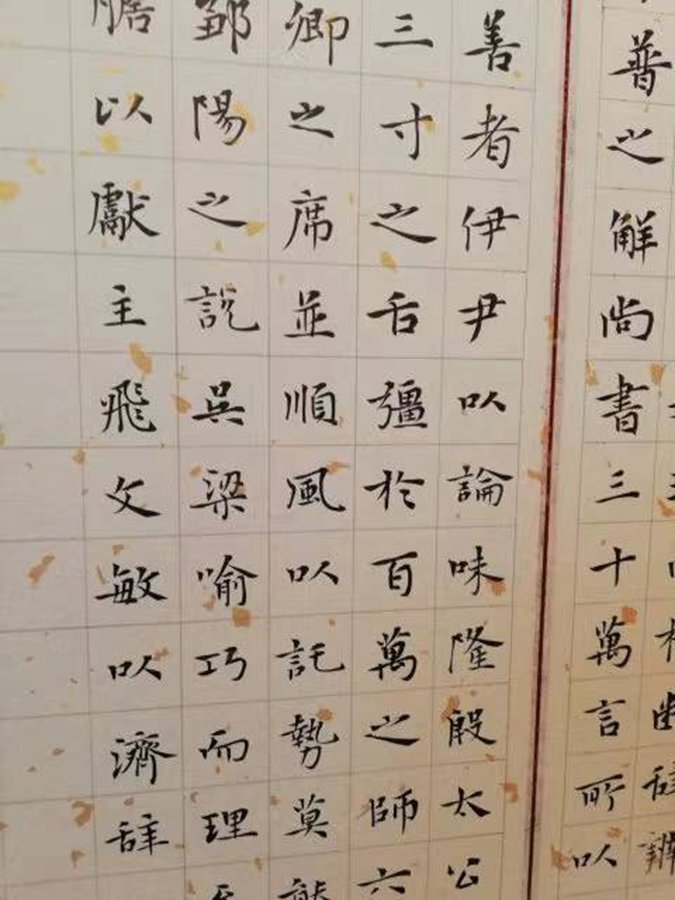 普之解尚書三十萬言所以
善者伊尹以論味隆殷太公
三寸之舌彊於百萬之師六
卿之席並順風以託勢莫能
鄒陽之說吳梁喻巧而理至
膽以獻主飛文敏以濟辞